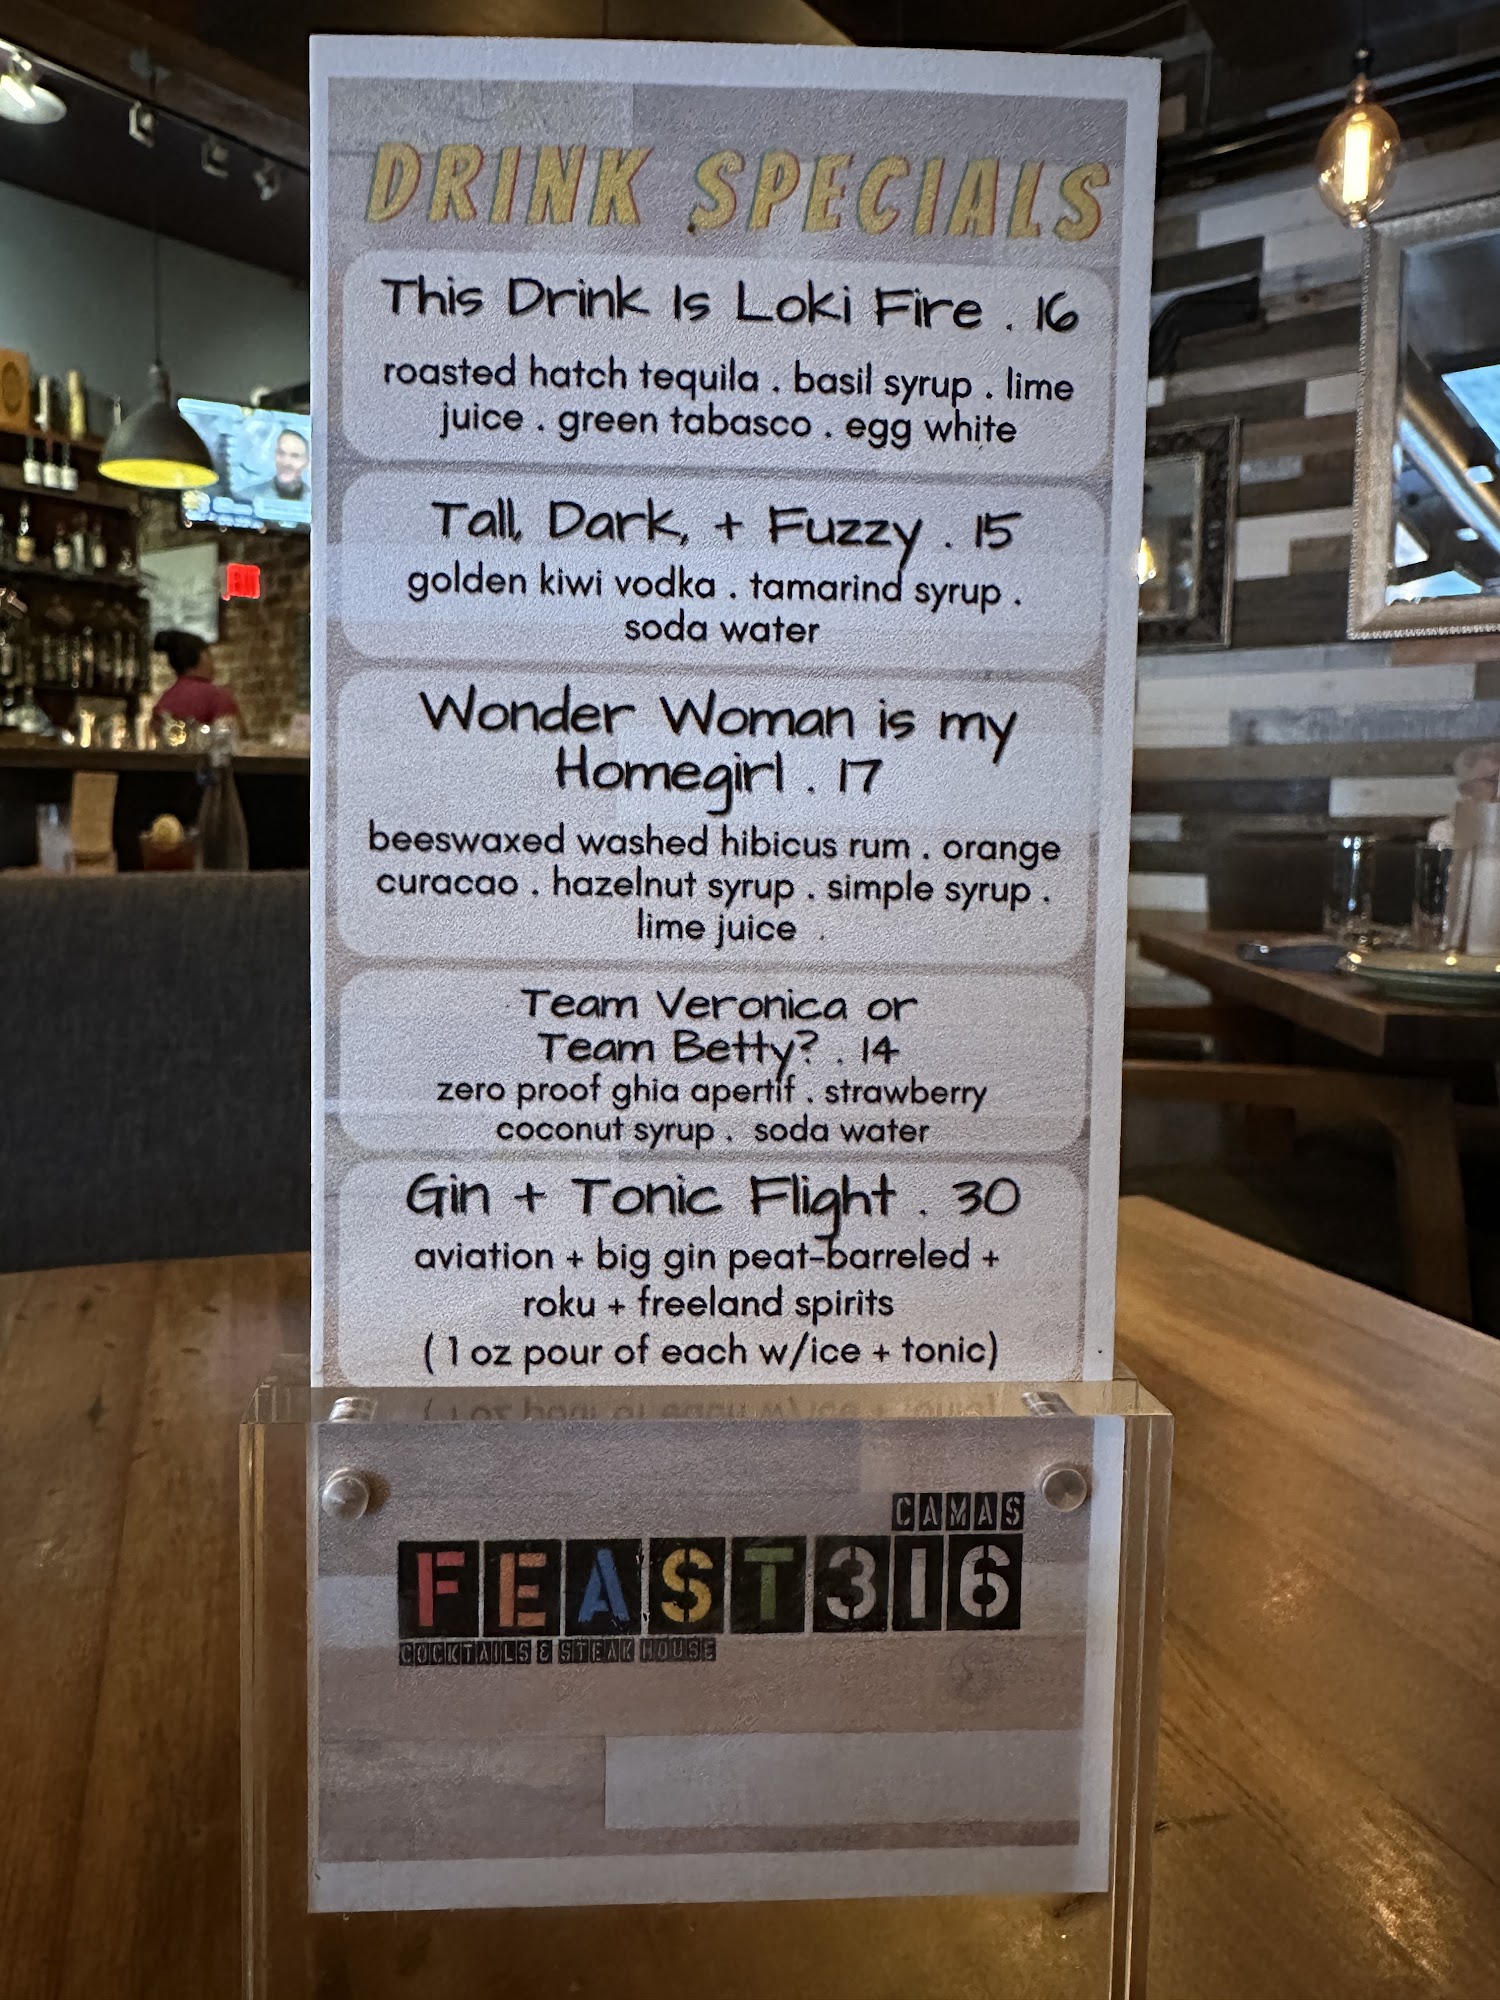 DRINK SPECIALS
This Drink Is Loki Fire . 16
roasted hatch tequila . basil syrup . lime
juice . green tabasco . egg white
Tall, Dark, + Fuzzy . 15
golden kiwi vodka . tamarind syrup .
soda water
Wonder Woman is my
Homegirl . 17
beeswaxed washed hibicus rum . orange
curacao . hazelnut syrup . simple syrup .
lime juice .
Team Veronica or
Team Betty? . 14
zero proof ghia apertif . strawberry
coconut syrup . soda water
Gin + Tonic Flight . 30
aviation + big gin peat-barreled +
roku + freeland spirits
( 1 oz pour of each w/ice + tonic)
CAMAS
FEAST316
COCKTAILS & STEAK HOUSE